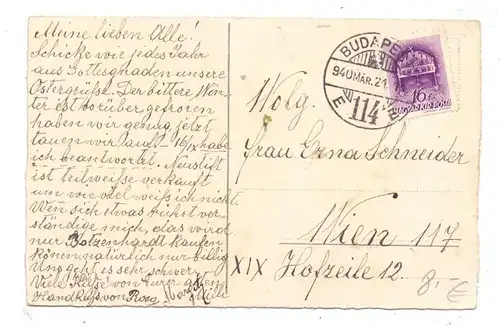 Meine lieben Alle!
Schicke wie jedes Jahr
aus Gottesgnaden unsere
Ostergrüsse. Der bittere Win-
ter ist vorüber gefroren
haben wir genug jetzt
tauen wir lauft 16/IX habe
ich beantwortet. Neustift
ist teilweisse verkauft
um wie viel weiss ich nicht
Wen sich etwas hührt ver-
ständige mich, das wird
nur Botzenhardt kaufen
könen, natürlich nur billig
Uns geht es sehr schwer
Viele Küsse von Eurer alten
Handküss von Rosa
BUDAPE
940 MAR. 21
114
16 f
MAGYAR KIR. POSTA
Wolg.
Frau Erna Schneider
Wien 117
XIX Hofzeile 12
8,- €